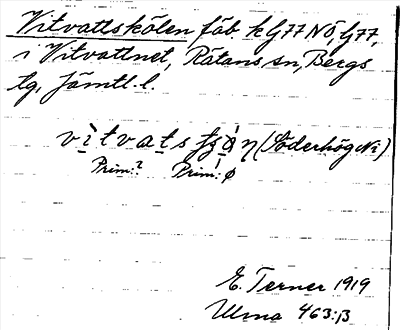 Vitvattskölen fäb. k G77 NÖ, G77,
i Vitvattnet, Rätans sn, Bergs
tg, Jämtl. l.
vìtvats (Söderhög N:2)
Prim:? Prim: ø
E. Terner 1919
Ulma 463:13